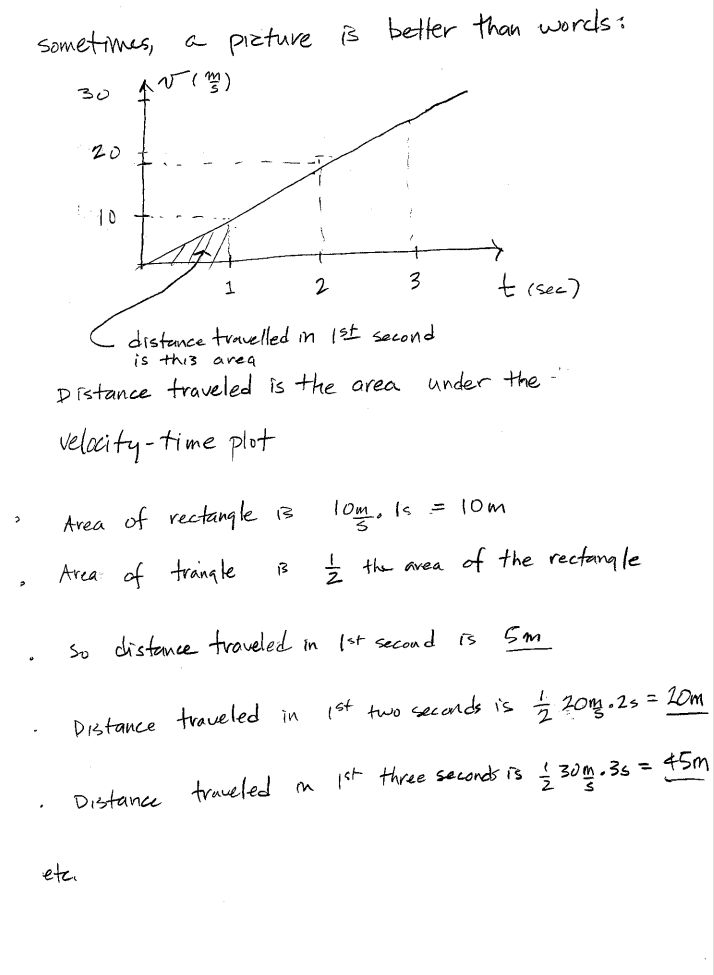 sometimes, a picture is better than words:
v (m/s)
30
20
10
1 2 3 t (sec)
distance travelled in 1st second
is this area
Distance traveled is the area under the
velocity-time plot
Area of rectangle is 10 m/s . 1s = 10m
Area of triangle is 1/2 the area of the rectangle
. So distance traveled in 1st second is 5m
. Distance traveled in 1st two seconds is 1/2 20 m/s . 2s = 20m
. Distance traveled in 1st three seconds is 1/2 30 m/s . 3s = 45m
etc.